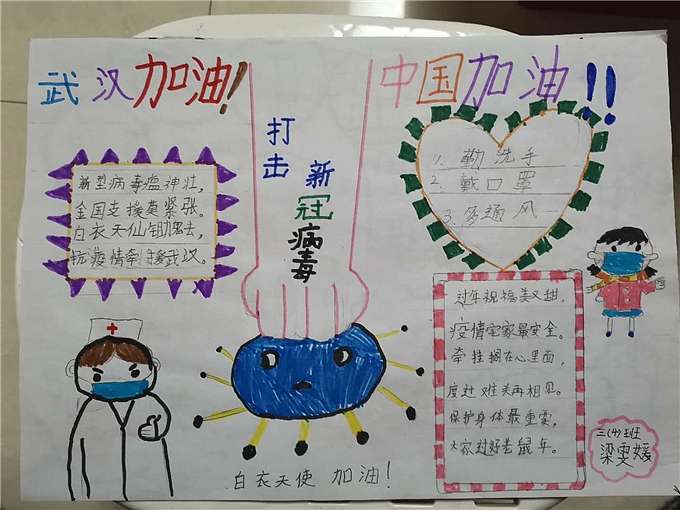 武汉加油!
中国加油!!
打击
新冠
病毒
新型病毒瘟神壮,
全国支援莫紧张。
白衣天仙助器去,
抗疫情牵手援武汉。
1. 勤洗手
2. 戴口罩
3. 多通风
过年祝福美又甜,
疫情宅家最安全。
牵挂搁在心里面,
度过难关再相见。
保护身体最重要,
大家过好吉鼠年。
白衣天使 加油!
三(4)班
梁雯媛